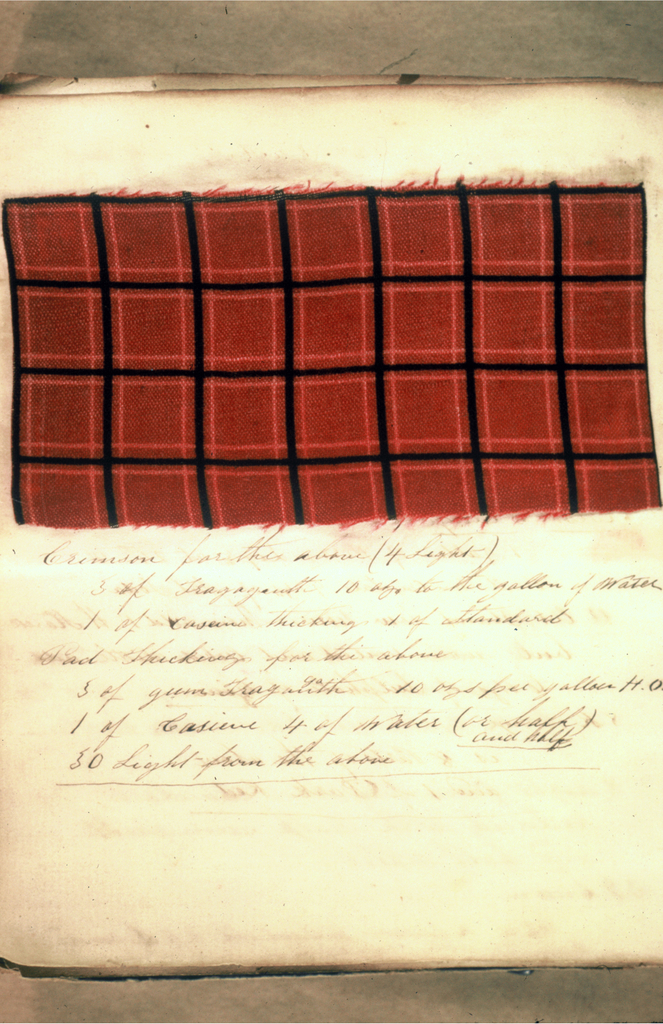 Crimson for the above (4 Light)
3 of Tragaganth 10 ozs to the gallon of Water
1 of Caseine thicking 1 of Standard
Pad Thicking for the above
3 of gum Tragatith 10 ozs per gallon H.O
1 of Casiene 4 of Water (or half)
and half
30 Light from the above